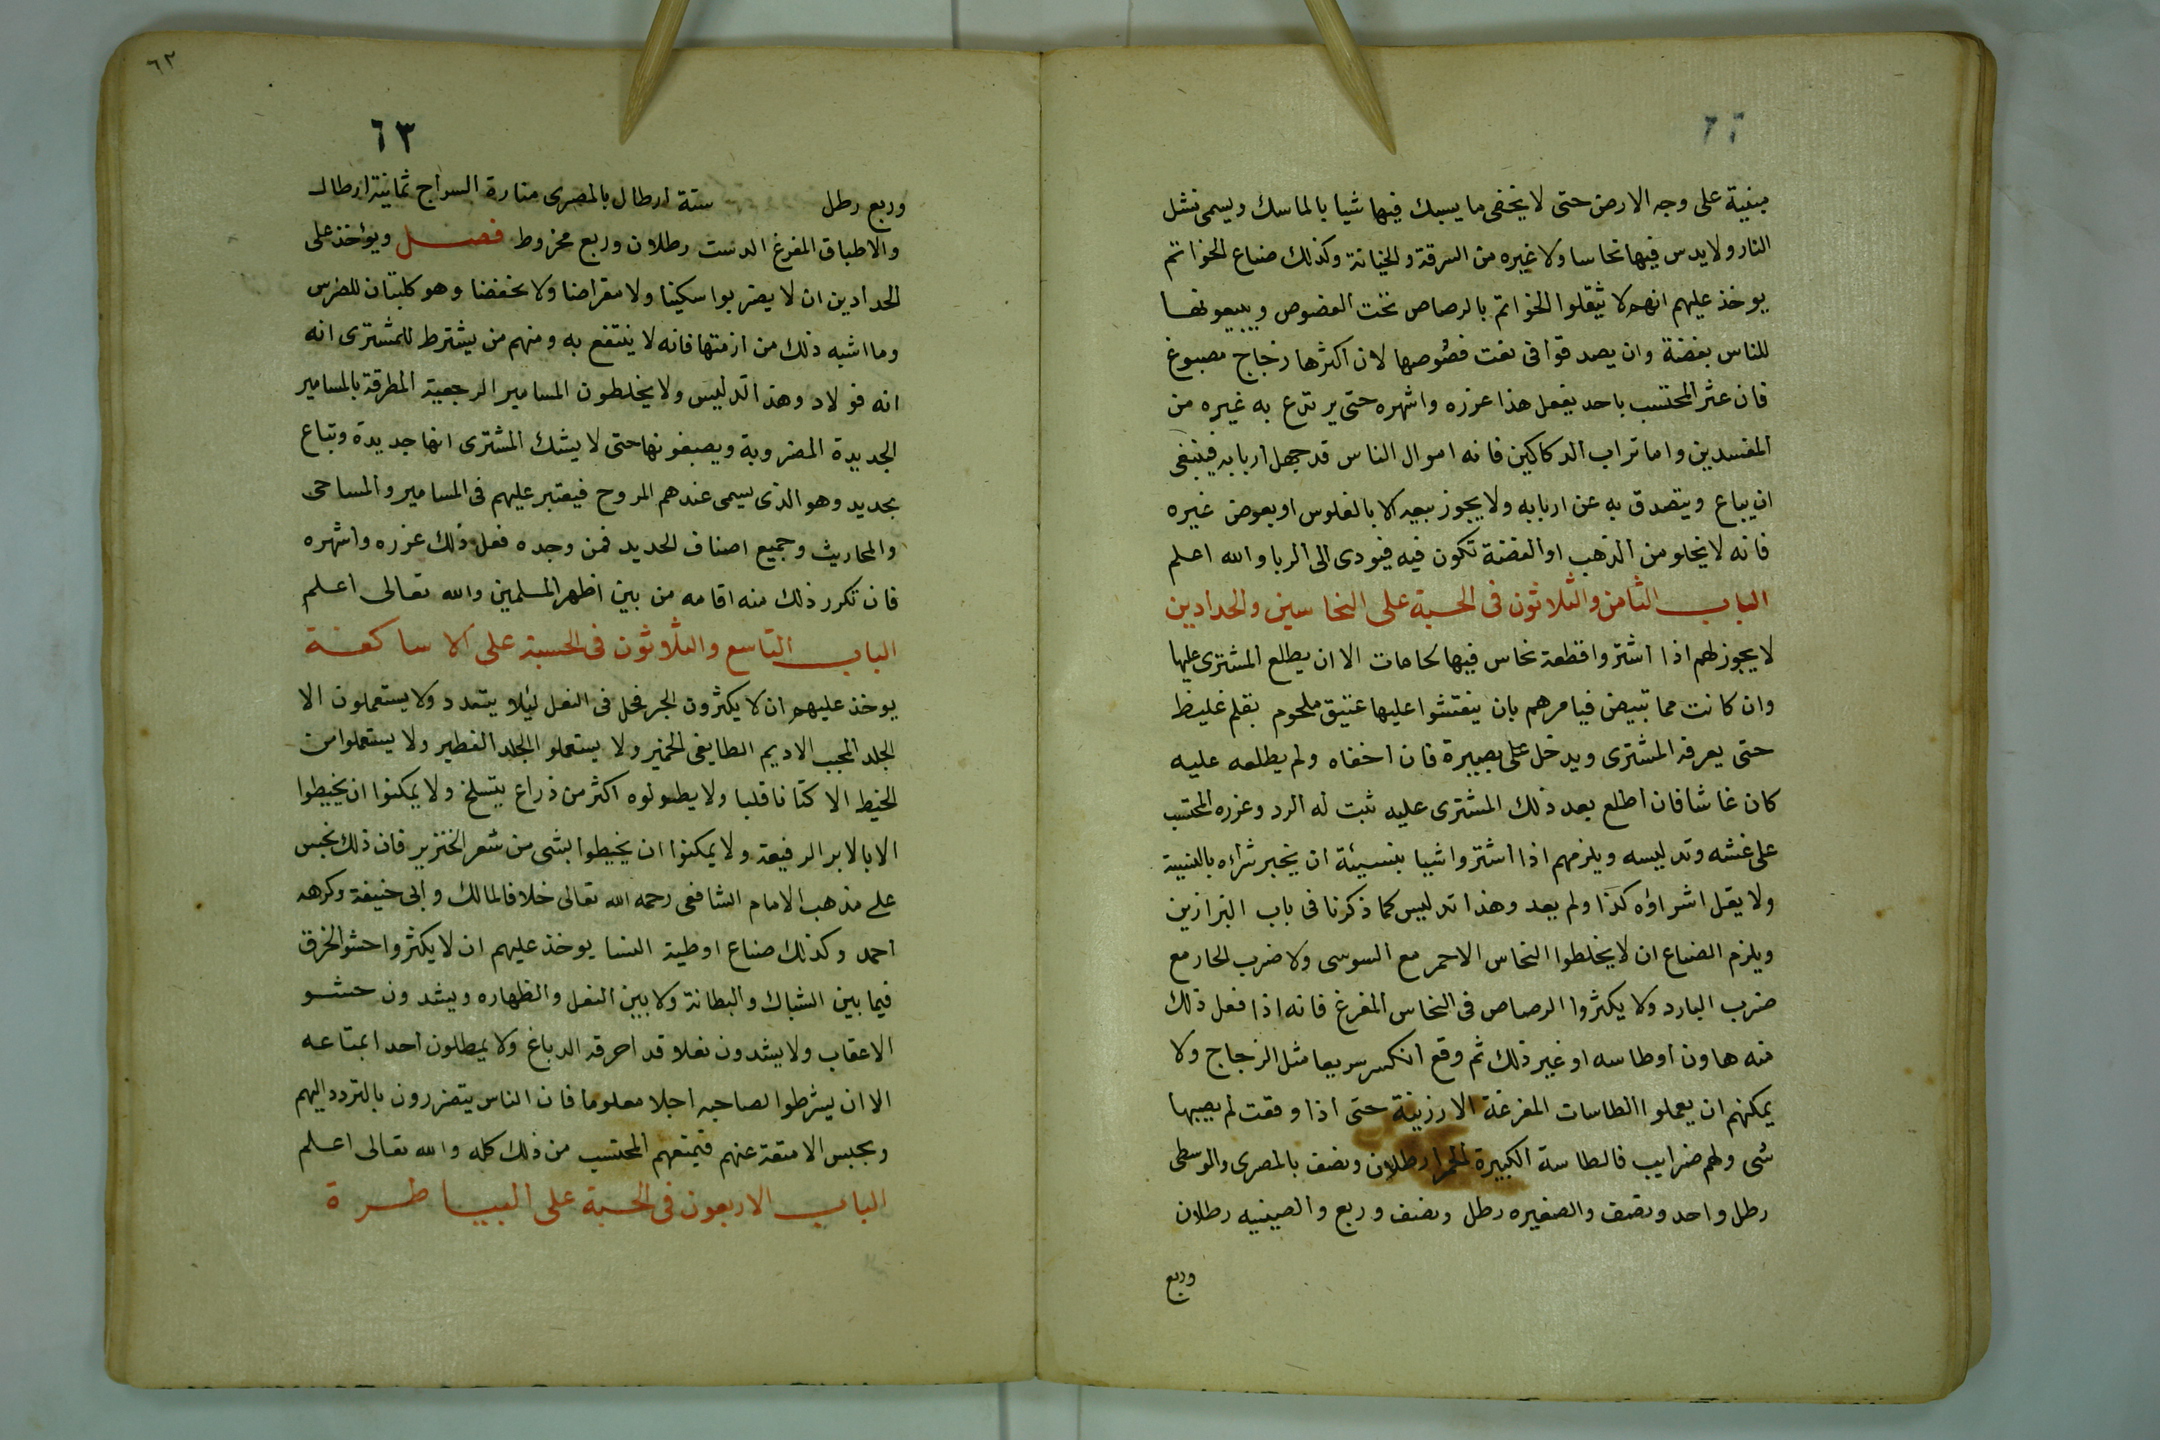 ٦٢
مبنية على وجه الارض حتى لا يخفى ما يسبك فيها شيا بالماسك ويسمى نشل
النار ولا يدس فيها نحاسا ولا غيره من السرقة والخيانة وكذلك صناع الخواتم
يوخذ عليهم انهم لا يثقلوا الخواتم بالرصاص تحت الفصوص ويبيعونها
للناس بفضة وان يصدقوا فى نعت فصوصها لان اكثرها زجاج مصبوغ
فان عثر المحتسب باحد يفعل هذا عزره واشهره حتى يرتدع به غيره من
المفسدين واما تراب الدكاكين فانه اموال الناس قد جهل اربابه فينبغى
ان يباع ويتصدق به عن اربابه ولا يجوز بيعه الا بالفلوس او بعوض غيره
فانه لا يخلو من الذهب او الفضة تكون فيه فيودى الى الربا والله اعلم
الباب الثامن والثلاثون فى الحسبة على النحاسين والحدادين
لا يجوز لهم اذا اشتروا قطعة نحاس فيها لحامات الا ان يطلع المشترى عليها
وان كانت مما تبيض فيامرهم بان ينقشوا عليها عتيق ملحوم بقلم غليظ
حتى يعرفه المشترى ويدخل على بصيرة فان اخفاه ولم يطلعه عليه
كان غاشا فان اطلع بعد ذلك المشترى عليه ثبت له الرد وعزره المحتسب
على غشه وتدليسه ويلزمهم اذا اشتروا شيا بنسيئة ان يخبر شراءه بالنسية
ولا يقل اشراؤه كذا ولم يعد وهذا تدليس كما ذكرنا فى باب البزازين
ويلزم الصناع ان لا يخلطوا النحاس الاحمر مع السوسى ولا ضرب الحار مع
ضرب البارد ولا يكثروا الرصاص فى النحاس المفرغ فانه اذا فعل ذلك
منه هاون اوطاسه او غير ذلك ثم وقع انكسر سريعا مثل الزجاج ولا
يمكنهم ان يعملوا الطاسات المفرغة الا رزينة حتى اذا وقعت لم يصبها
شى ولهم ضرايب فالطاسة الكبيرة الحمرا رطلان ونصف بالمصرى والوسطى
رطل واحد ونصف والصغيره رطل ونصف وربع والصينيه رطلان
وربع
٦٣
٦٣
وربع رطل ستة ارطال بالمصرى منارة السراج ثمانية ارطال
والاطباق المفرغ الدست رطلان وربع مخروط فصل ويؤخذ على
الحدادين ان لا يضربوا سكينا ولا مقراضا ولا مخفضا وهو كلبتان للضرس
وما اشبه ذلك من ازمتها فانه لا ينتفع به ومنهم من يشترط للمشترى انه
انه فولاد وهذا تدليس ولا يخلطون المسامير الرجعية المطرقة بالمسامير
الجديدة المضروبة ويصبغونها حتى لا يشك المشترى انها جديدة وتباع
بجديد وهو الذى يسمى عندهم المروح فيعتبر عليهم فى المسامير والمساحى
والمحاريث وجميع اصناف الحديد فمن وجده فعل ذلك عزره واشهره
فان تكرر ذلك منه اقامه من بين اظهر المسلمين والله تعالى اعلم
الباب التاسع والثلاثون فى الحسبة على الاساكفة
يوخذ عليهم ان لا يكثرون الجر فحل فى النعل ليلا يتمدد ولا يستعملون الا
الجلد المجبب الاديم الطايفى الخمير ولا يستعملو الجلد الفطير ولا يستعملوا من
الخيط الا كتانا قلبا ولا يطولوه اكثر من ذراع يتسلخ ولا يمكنوا ان يخيطوا
الا بالابر الرفيعة ولا يمكنوا ان يخيطوا بشى من شعر الخنزير فان ذلك نجس
على مذهب الامام الشافعى رحمه الله تعالى خلافا لمالك وابى حنيفة وكرهه
احمد وكذلك صناع اوطية النسا يوخذ عليهم ان لا يكثروا حشو الخرق
فيما بين الشباك والبطانة ولا بين النعل والظهاره ويشدون حشو
الاعقاب ولا يشدون نعلا قد احرقه الدباغ ولا يمطلون احدا بمتاعه
الا ان يشرطوا لصاحبه اجلا معلوما فان الناس يتضررون بالتردد اليهم
وبحبس الامتعة عنهم فيمنعهم المحتسب من ذلك كله والله تعالى اعلم
الباب الاربعون فى الحسبة على البياطرة